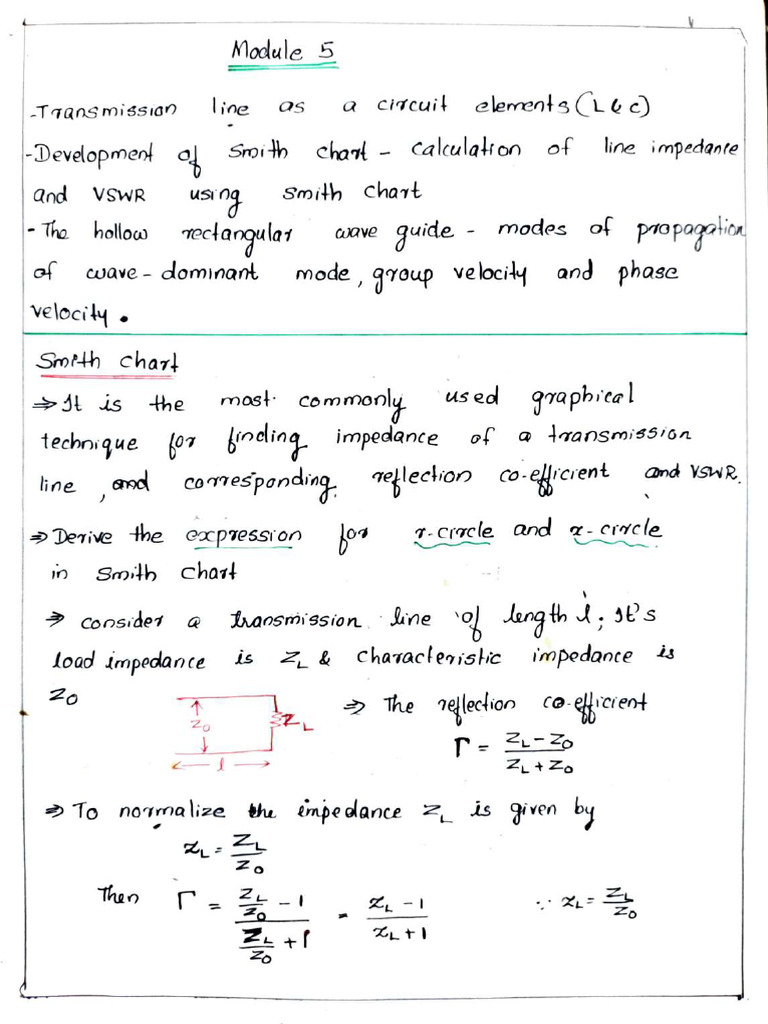 Module 5
- Transmission line as a circuit elements (L & C)
- Development of Smith chart - calculation of line impedance
and VSWR using smith chart
- The hollow rectangular wave guide - modes of propagation
of wave - dominant mode, group velocity and phase
velocity.
Smith chart
⇒ It is the most commonly used graphical
technique for finding impedance of a transmission
line, and corresponding reflection co-efficient and VSWR.
⇒ Derive the expression for r-circle and x-circle
in Smith chart
⇒ consider a transmission line of length l; It's
load impedance is ZL & characteristic impedance is
Z0
Z0 ZL
l
⇒ The reflection co-efficient
Γ = (ZL - Z0)/(ZL + Z0)
⇒ To normalize the impedance ZL is given by
zL = ZL/Z0
Then Γ = (ZL/Z0 - 1)/(ZL/Z0 + 1) = (zL - 1)/(zL + 1) ∵ zL = ZL/Z0